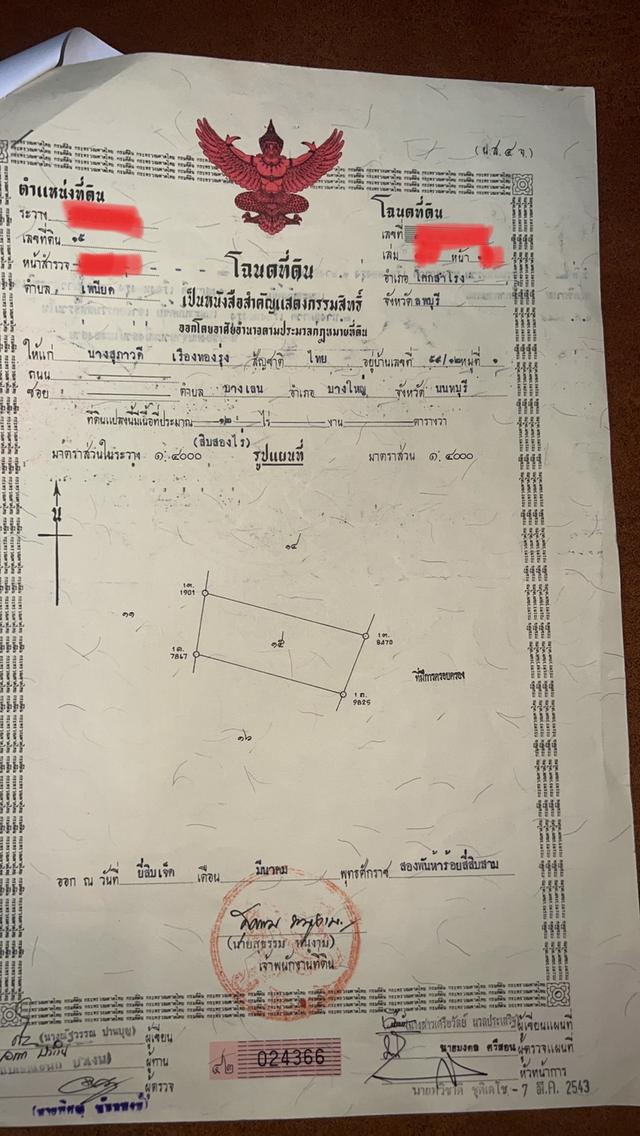 (น.ส. ๔ จ.)
ตำแหน่งที่ดิน
ระวาง
เลขที่ดิน ๑๕
หน้าสำรวจ
ตำบล เพนียด
โฉนดที่ดิน
เลขที่
เล่ม หน้า
อำเภอ โคกสำโรง
จังหวัด ลพบุรี
โฉนดที่ดิน
เป็นหนังสือสำคัญแสดงกรรมสิทธิ์
ออกโดยอาศัยอำนาจตามประมวลกฎหมายที่ดิน
ให้แก่ นางสุภาวดี เรืองทองรุ่ง สัญชาติ ไทย อยู่บ้านเลขที่ ๕๙/๑๒ หมู่ที่ ๑
ถนน
ซอย ตำบล บางเลน อำเภอ บางใหญ่ จังหวัด นนทบุรี
ที่ดินแปลงนี้มีเนื้อที่ประมาณ ๑๒ ไร่ งาน ตารางวา
(สิบสองไร่)
มาตราส่วนในระวาง ๑:๔๐๐๐ รูปแผนที่ มาตราส่วน ๑:๔๐๐๐
น
๑๔
1901
๑๑
๑๕
8470
7847
ที่มีการครอบครอง
9825
๑๖
ออก ณ วันที่ ยี่สิบเจ็ด เดือน มีนาคม พุทธศักราช สองพันห้าร้อยสี่สิบสาม
เจ้าพนักงานที่ดิน
ผู้เขียน
ผู้ทาน
ผู้ตรวจ
๔๒ 024366
ผู้เขียนแผนที่
นายมงคล ศรีสอน ผู้ตรวจแผนที่
หัวหน้าการ
- 7 มี.ค. 2543